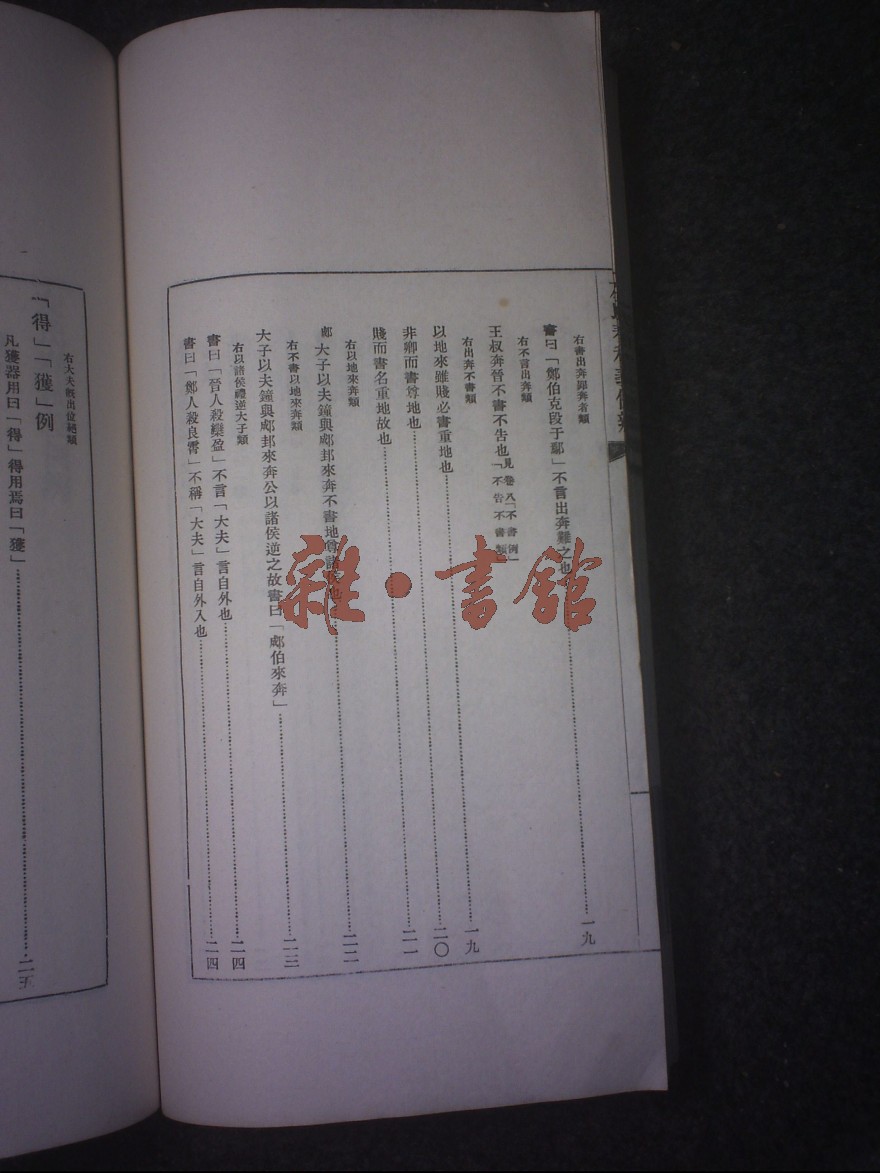 右書出奔罪奔者類
書曰「鄭伯克段于鄢」不言出奔難之也……一九
右不言出奔類
王叔奔晉不書不告也見卷八「不書例」「不告不書類」……一九
右出奔不書類
以地來雖賤必書重地也……二〇
非卿而書尊地也……二一
賤而書名重地故也
右以地來奔類……二二
郕大子以夫鐘與郕邽來奔不書地尊諸侯也
右不書以地來奔類……二三
大子以夫鐘與郕邽來奔公以諸侯逆之故書曰「郕伯來奔」
右以諸侯禮逆大子類……二四
書曰「晉人殺欒盈」不言「大夫」言自外也……二四
書曰「鄭人殺良霄」不稱「大夫」言自外入也
右大夫既出位絕類
「得」「獲」例
凡獲器用曰「得」得用焉曰「獲」……二五
雜·書館